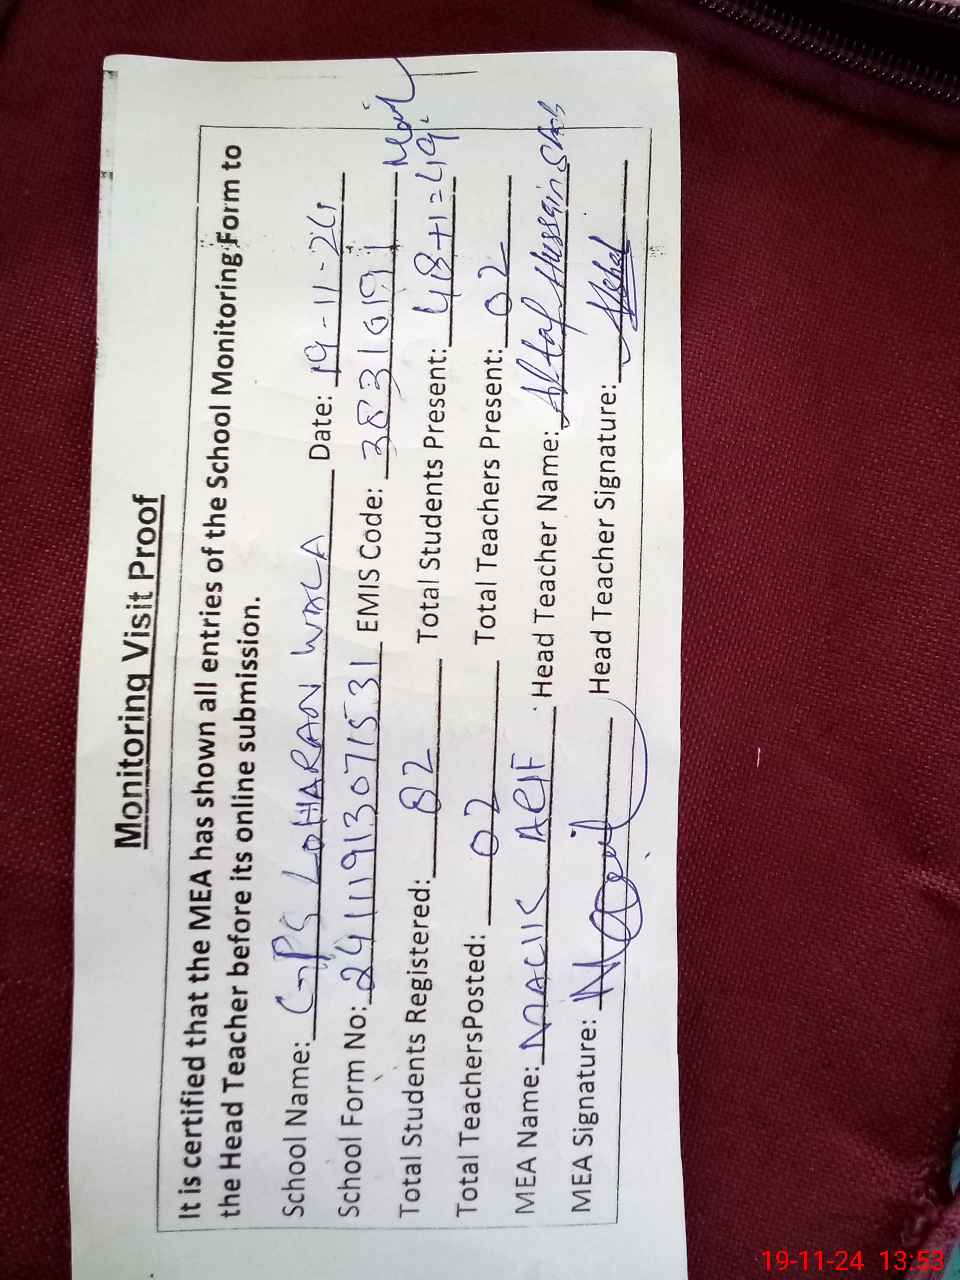 Monitoring Visit Proof
It is certified that the MEA has shown all entries of the School Monitoring Form to
the Head Teacher before its online submission.
School Name: GPS LOHARAN WALA Date: 19-11-24
School Form No: 24111913071531 EMIS Code: 38310191
Total Students Registered: 82 Total Students Present: 48+1=49
Total TeachersPosted: 02 Total Teachers Present: 02
MEA Name: MALIK ARIF Head Teacher Name: Altaf Hussain Shah
MEA Signature: Head Teacher Signature:
19-11-24 13:53